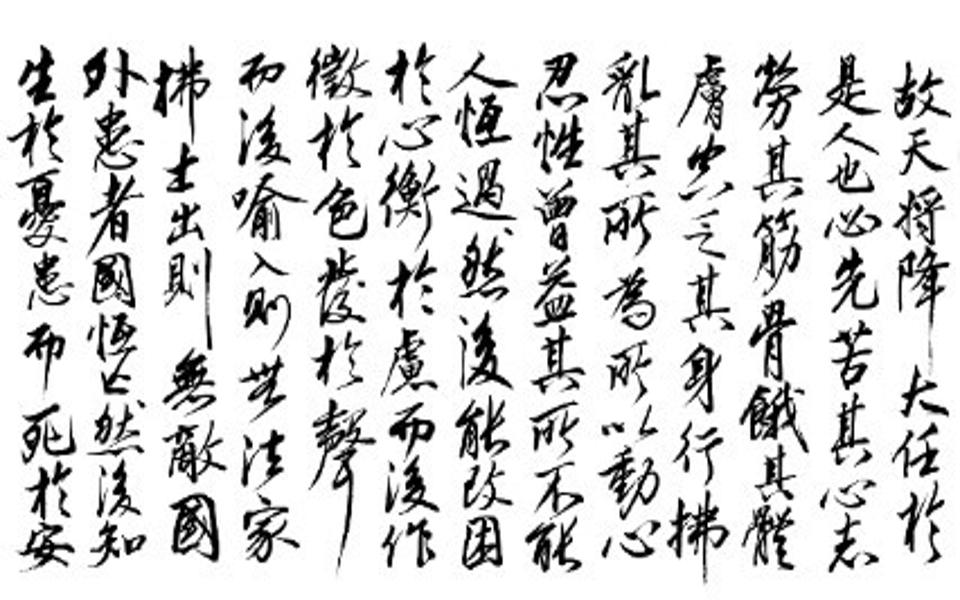 故天将降大任於
是人也必先苦其心志
勞其筋骨餓其體
膚空乏其身行拂
亂其所為所以動心
忍性曾益其所不能
人恆過然後能改困
於心衡於慮而後作
徵於色發於聲
而後喻入則無法家
拂士出則無敵國
外患者國恆亡然後知
生於憂患而死於安